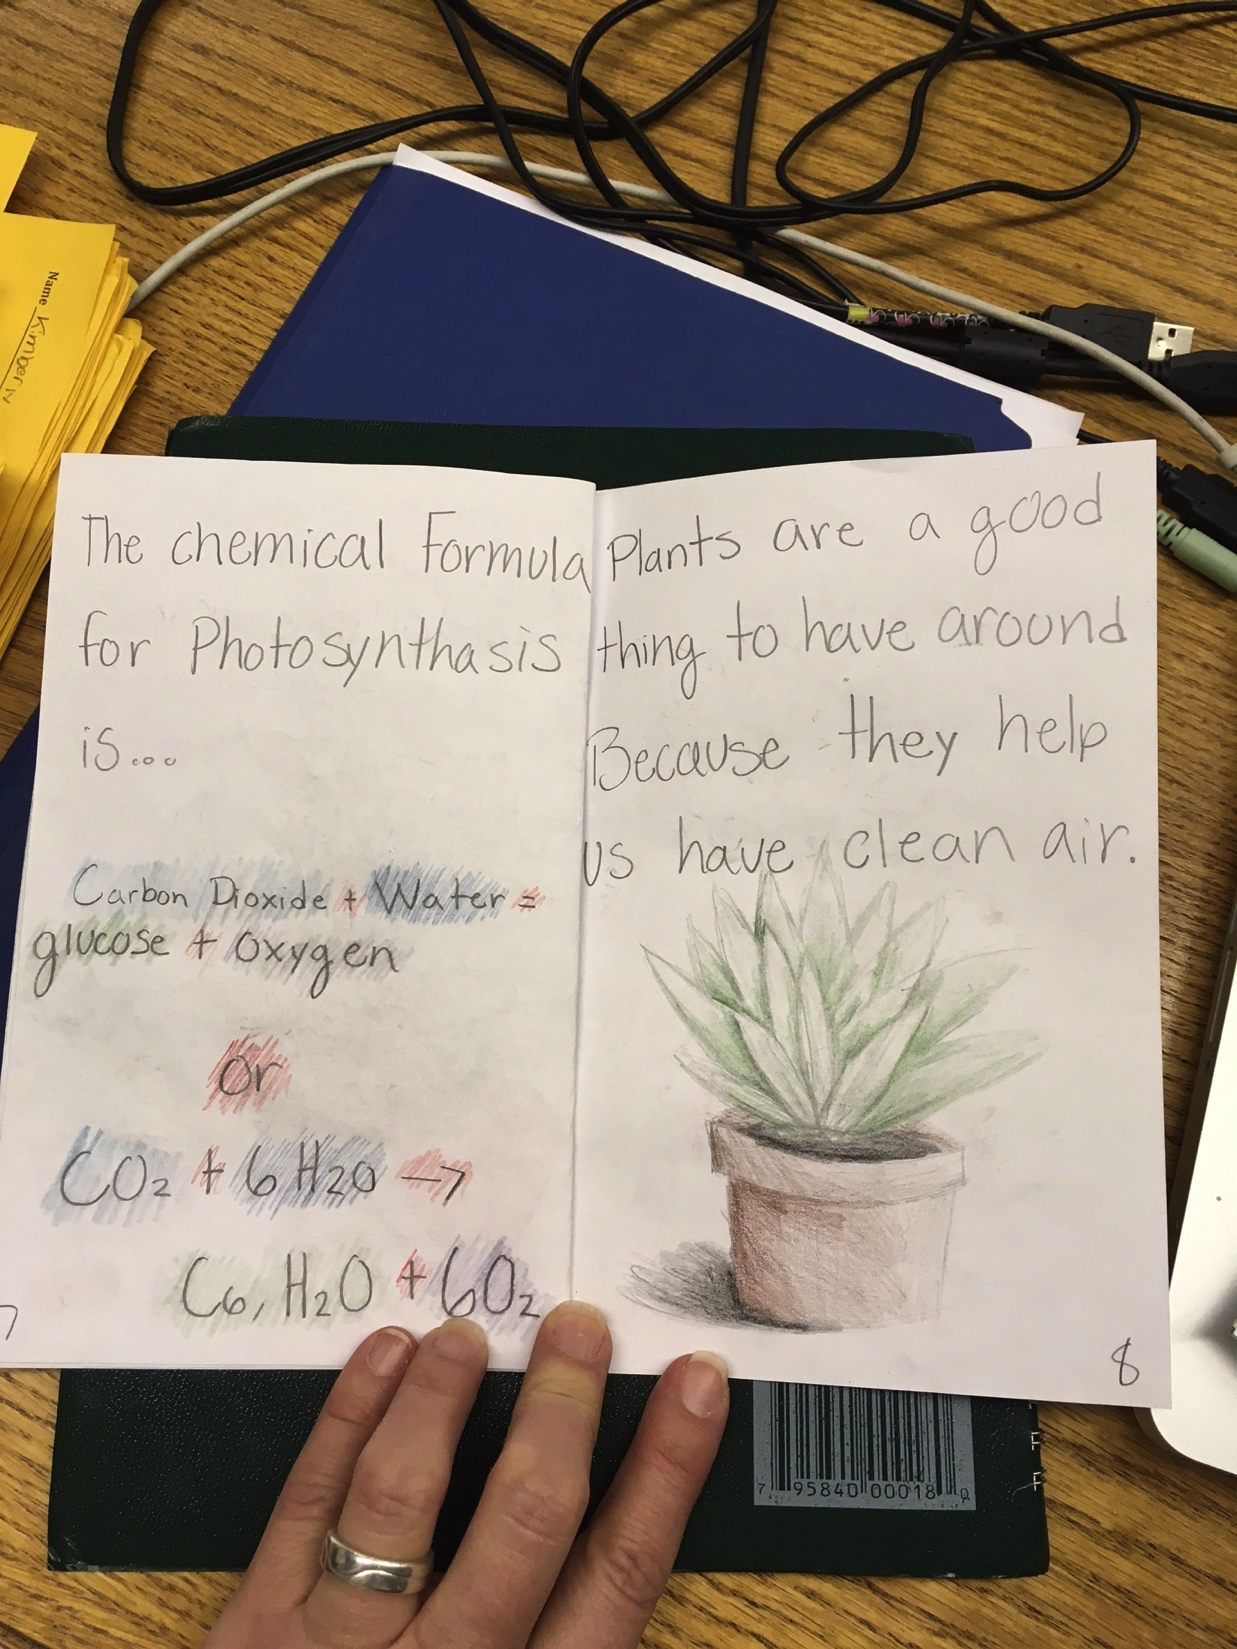 Name Kimber
The chemical Formula
for Photosynthasis
is...
Carbon Dioxide + Water =
glucose + oxygen
Or
CO₂ + 6 H₂O →
C₆, H₂O + 6O₂
7
Plants are a good
thing to have around
Because they help
us have clean air.
8
7 95840 00018 0